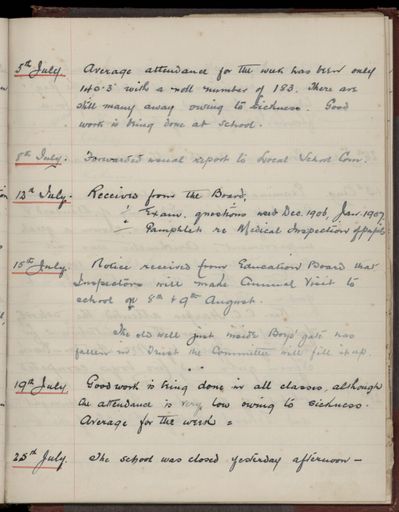 5th July. Average attendance for the week has been only
140.3 with a roll number of 183. There are
still many away owing to sickness. Good
work is being done at school.
8th July. Forwarded usual report to Local School Com.
12th July. Received from the Board,
1/ Exam. questions used Dec. 1906, Jan. 1907
2/ Pamphlets re Medical Inspection of pupils
15th July. Notice received from Education Board that
Inspectors will make Annual Visit to
school on 8th & 9th August.
The old well just inside Boys' gate has
fallen in. Trust the Committee will fill it up.
19th July. Good work is being done in all classes, although
the attendance is very low owing to sickness.
Average for the week =
25th July. The school was closed yesterday afternoon —